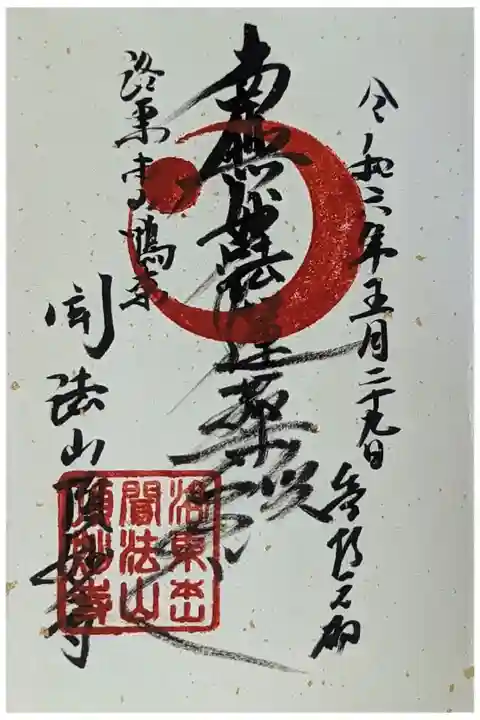 令和六年五月二十九日
南無妙法蓮華経
洛東
聞法山頂妙寺
洛東本山
聞法山
頂妙寺